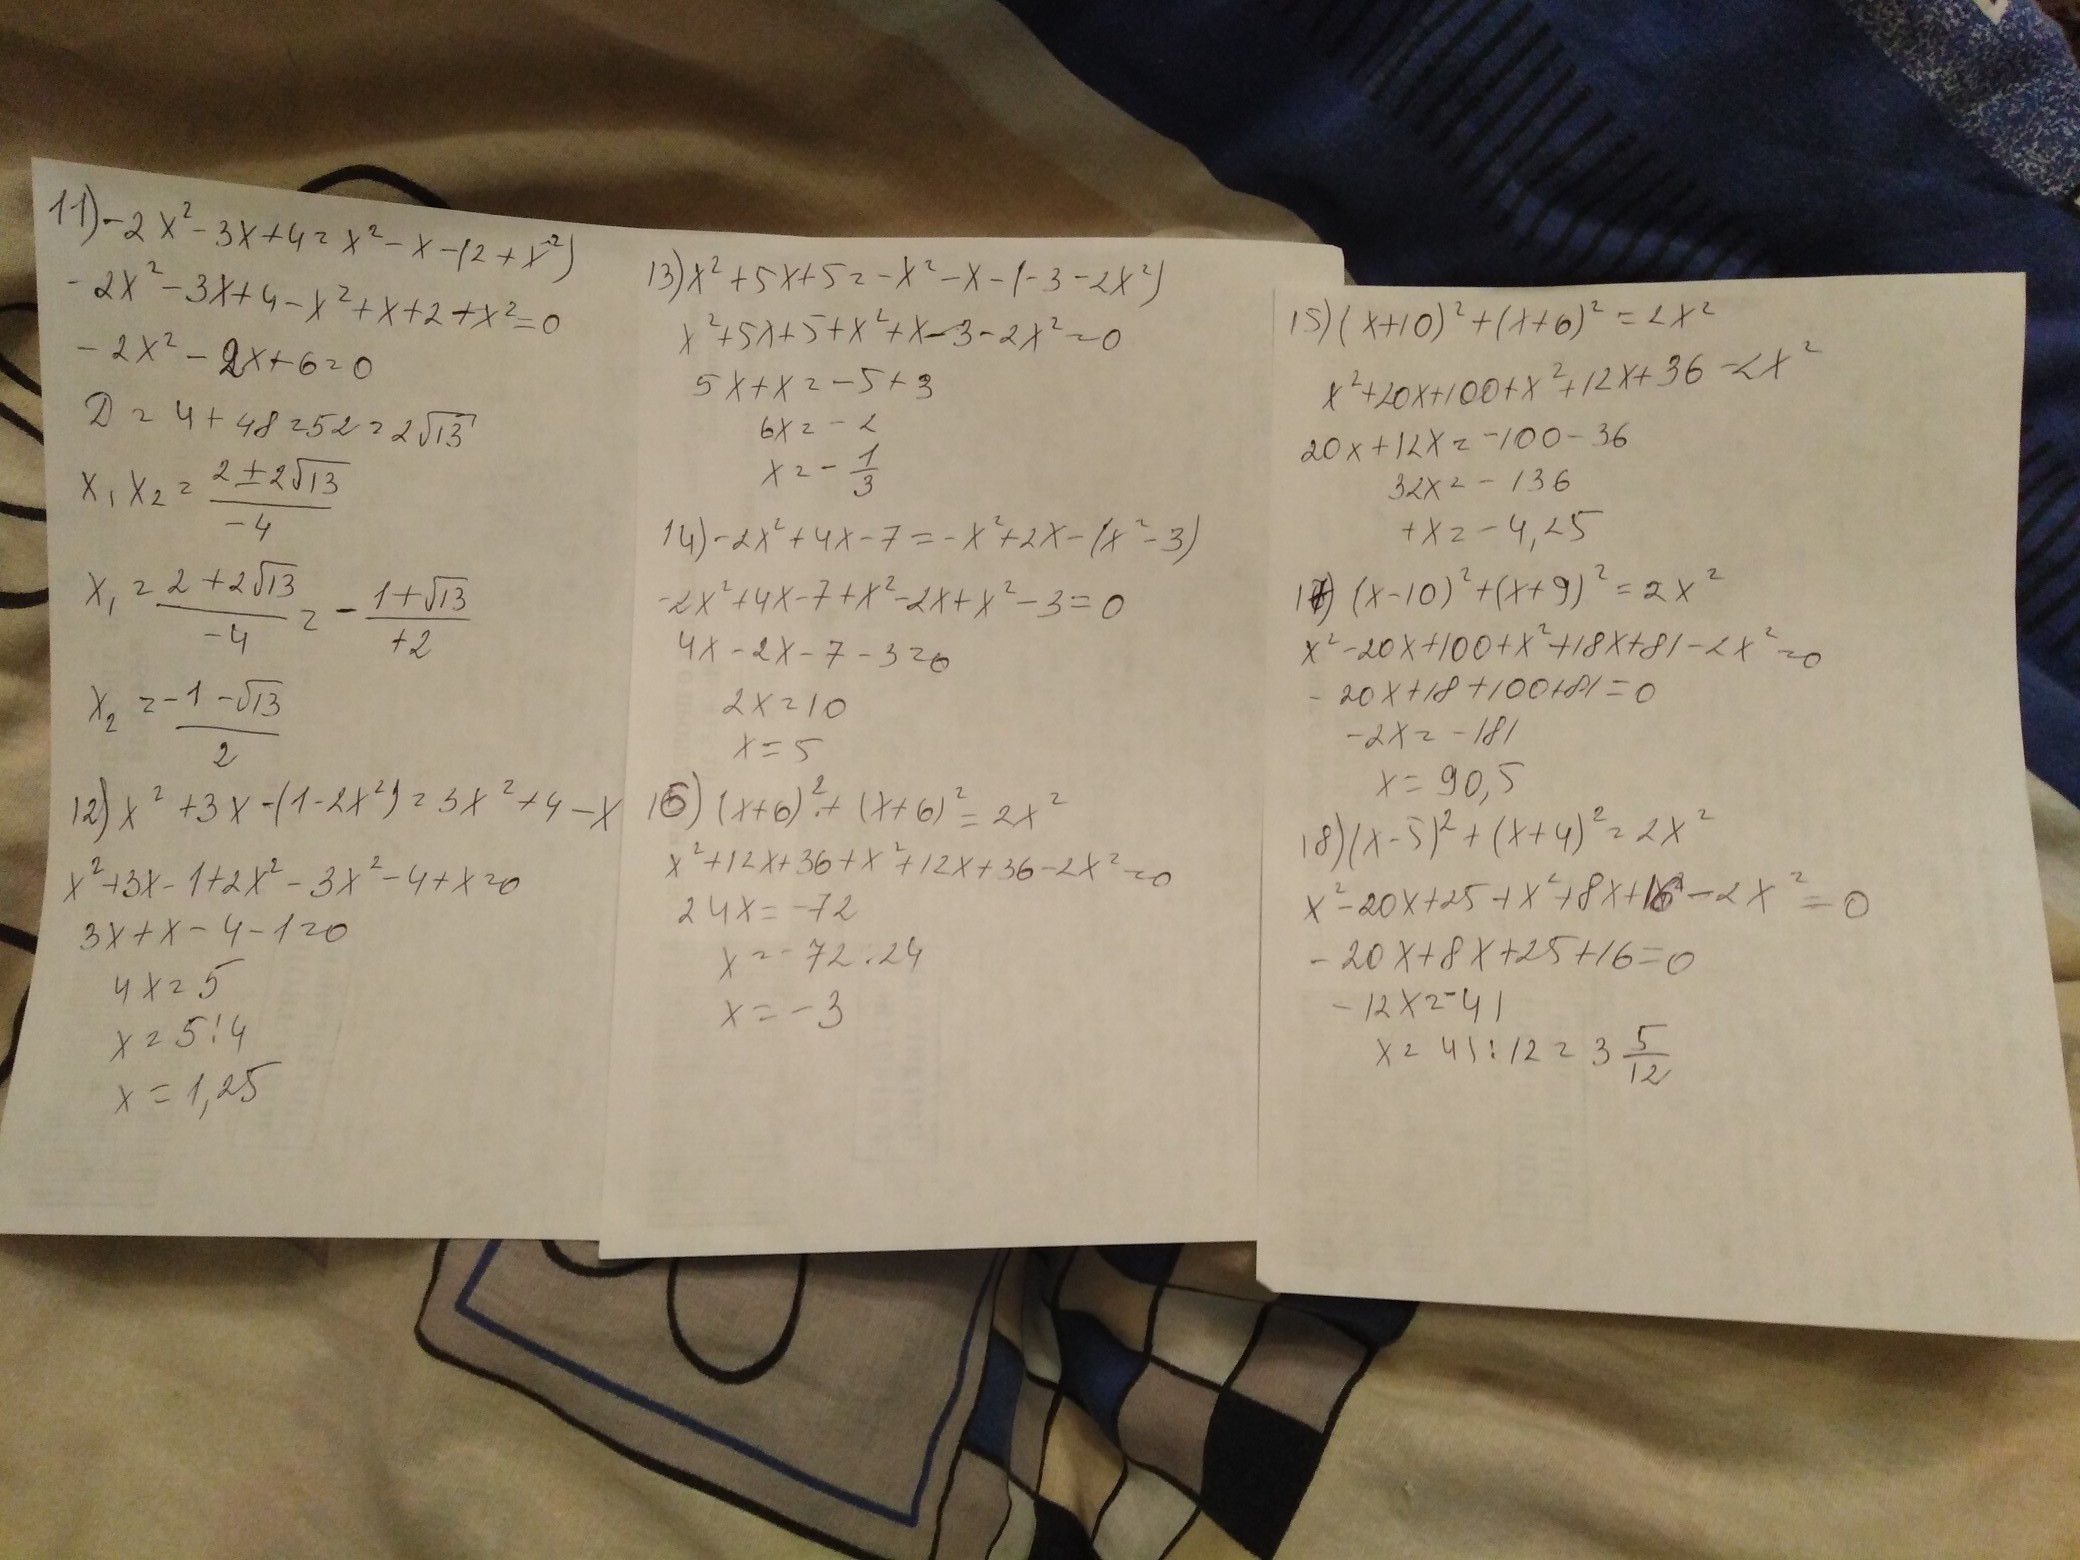 11) -2x² - 3x + 4 = x² - x - (2 + x²)
-2x² - 3x + 4 - x² + x + 2 + x² = 0
-2x² - 2x + 6 = 0
D = 4 + 48 = 52 = 2√13
x₁ x₂ = (2 ± 2√13)/(-4)
x₁ = (2 + 2√13)/(-4) = -(1 + √13)/(+2)
x₂ = (-1 - √13)/2
12) x² + 3x - (1 - 2x²) = 3x² + 4 - x
x² + 3x - 1 + 2x² - 3x² - 4 + x = 0
3x + x - 4 - 1 = 0
4x = 5
x = 5 : 4
x = 1,25
13) x² + 5x + 5 = -x² - x - (-3 - 2x²)
x² + 5x + 5 + x² + x - 3 - 2x² = 0
5x + x = -5 + 3
6x = -2
x = -1/3
14) -2x² + 4x - 7 = -x² + 2x - (x² - 3)
-2x² + 4x - 7 + x² - 2x + x² - 3 = 0
4x - 2x - 7 - 3 = 0
2x = 10
x = 5
16) (x+6)² + (x+6)² = 2x²
x² + 12x + 36 + x² + 12x + 36 - 2x² = 0
24x = -72
x = -72 : 24
x = -3
15) (x+10)² + (x+6)² = 2x²
x² + 20x + 100 + x² + 12x + 36 - 2x²
20x + 12x = -100 - 36
32x = -136
+x = -4,25
17) (x-10)² + (x+9)² = 2x²
x² - 20x + 100 + x² + 18x + 81 - 2x² = 0
-20x + 18 + 100 + 81 = 0
-2x = -181
x = 90,5
18) (x-5)² + (x+4)² = 2x²
x² - 20x + 25 + x² + 8x + 16 - 2x² = 0
-20x + 8x + 25 + 16 = 0
-12x = -41
x = 41 : 12 = 3 5/12